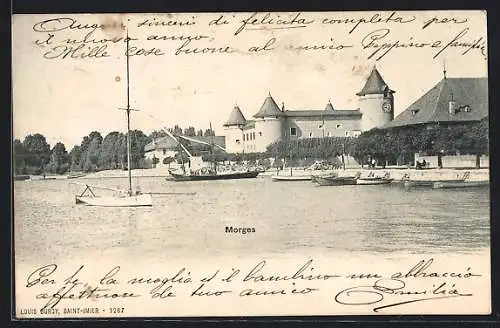 Auguri sinceri di felicita completa per
il nuovo anno.
Mille cose buone al amico Peppino e famiglia
Morges
Per te la moglia ed il bambino un abbraccio
affettuoso del tuo amico Emilia
LOUIS BURGY, SAINT-IMIER - 3267